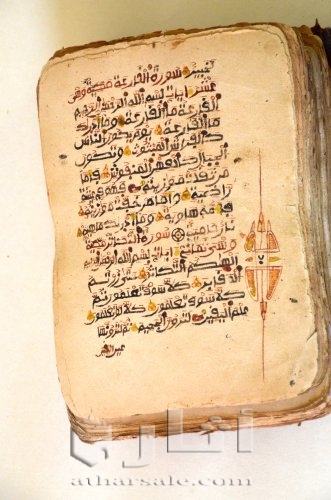 لخبير سورة القارعة مكية وهي
عشر ايات بسم الله الرحمن الرحيم
القارعة ما القارعة وما ادريك
ما القارعة يوم يكون الناس
كالفراش المبثوث وتكون
الجبال كالعهن المنفوش فاما
من ثقلت موازينه فهو في عيشة
راضية واما من خفت موازينه
فامه هاوية وما ادريك ما هيه
نار حامية سورة التكاثر
بسم الله الرحمن الرحيم
الهيكم التكاثر حتى زرتم
المقابر كلا سوف تعلمون ثم
كلا سوف تعلمون كلا لو تعلمون
علم اليقين لترون الجحيم ثم لترونها
عين اليقين
أثاري
atharsale.com